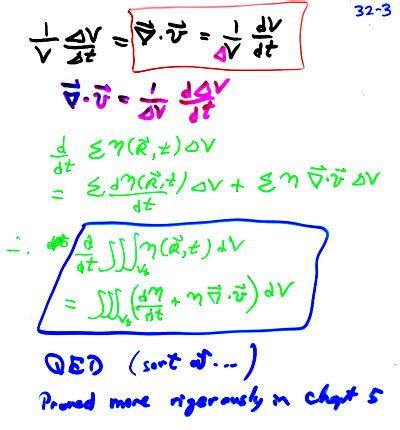 32-3
1/V ΔV/Δt = ∇⃗·v⃗ = 1/ΔV dV/dt
∇⃗·v⃗ = 1/ΔV dΔV/dt
d/dt Σ η(R⃗,t) ΔV
= Σ dη(R⃗,t)/dt ΔV + Σ η ∇⃗·v⃗ ΔV
∴ d/dt ∭_Vt η(R⃗,t) dV
= ∭_Vt (dη/dt + η ∇⃗·v⃗) dV
QED (sort of...)
Proved more rigorously in chapt 5